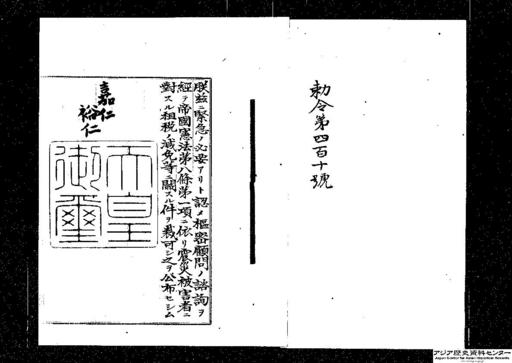 勅令第四百十號
朕玆ニ緊急ノ必要アリト認メ樞密顧問ノ諮詢ヲ
經テ帝國憲法第八條第一項ニ依リ震災被害者ニ
對スル租税ノ減免等ニ關スル件ヲ裁可シ之ヲ公布セシム
嘉仁
裕仁
天皇
御璽
アジア歴史資料センター
Japan Center for Asian Historical Records